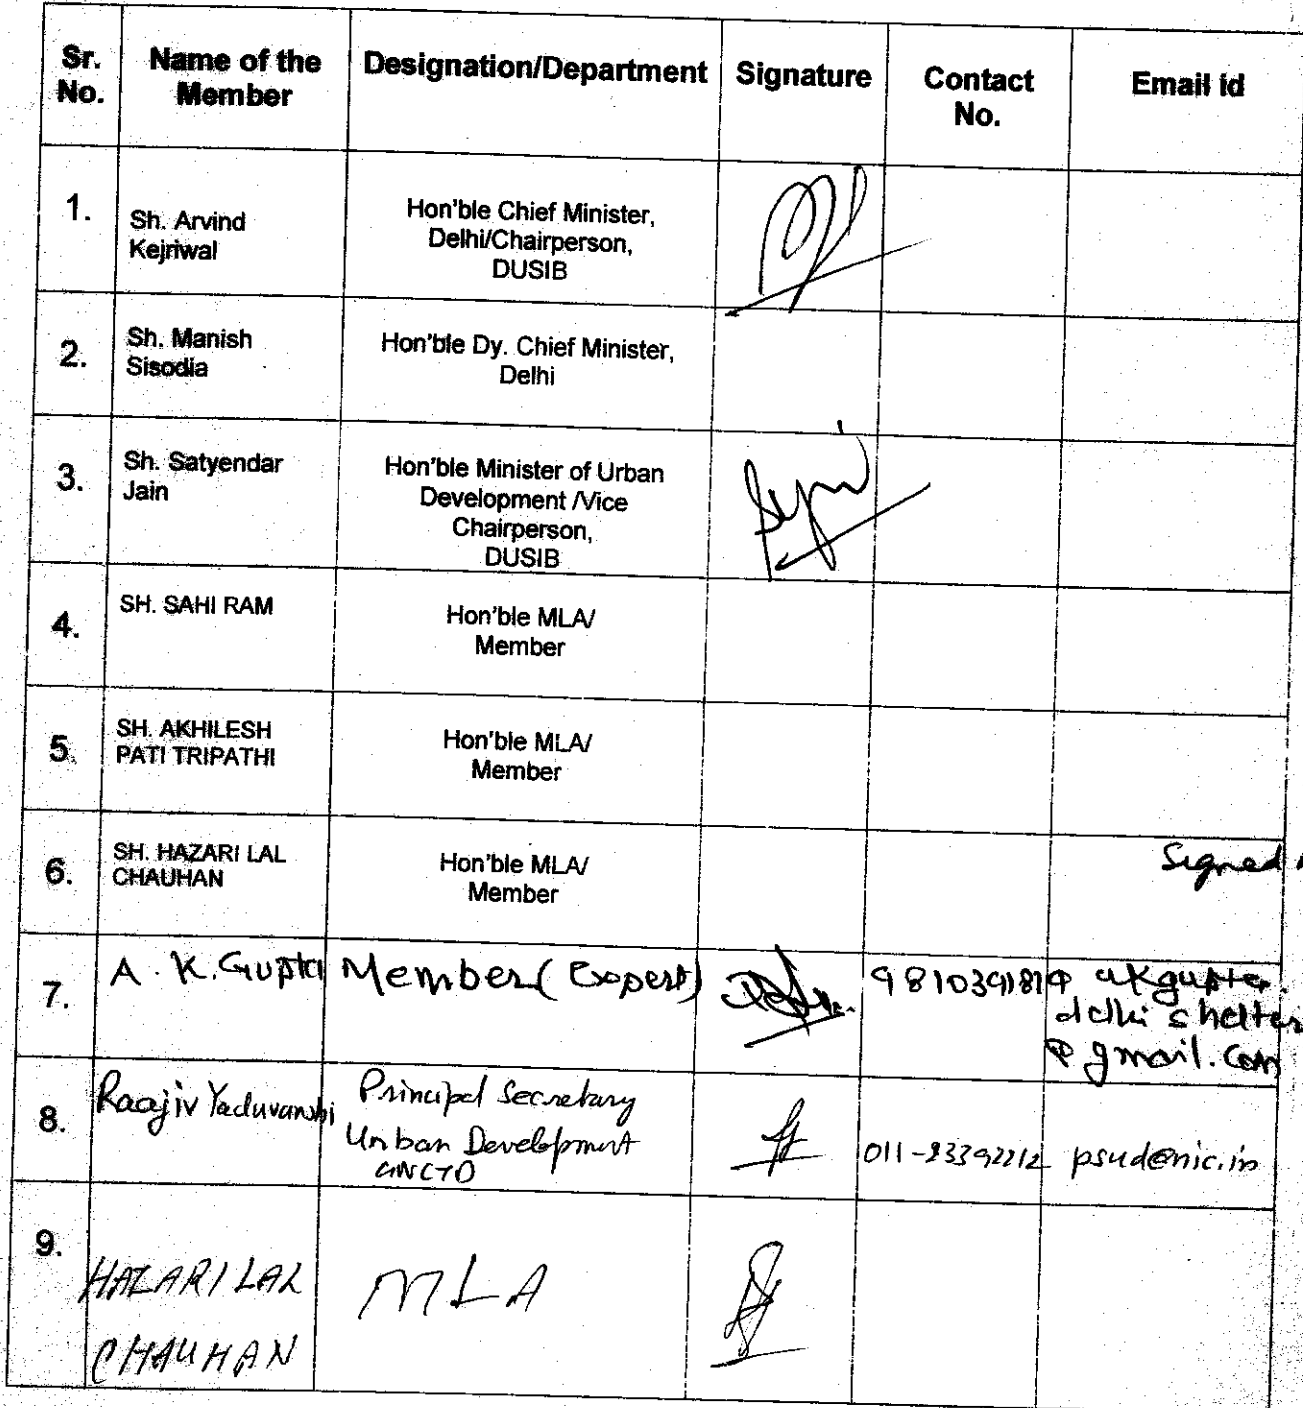 Sr. No. Name of the Member Designation/Department Signature Contact No. Email id
1.
Sh. Arvind
Kejriwal
Hon'ble Chief Minister,
Delhi/Chairperson,
DUSIB
2.
Sh. Manish
Sisodia
Hon'ble Dy. Chief Minister,
Delhi
3.
Sh. Satyendar
Jain
Hon'ble Minister of Urban
Development /Vice
Chairperson,
DUSIB
4.
SH. SAHI RAM
Hon'ble MLA/
Member
5.
SH. AKHILESH
PATI TRIPATHI
Hon'ble MLA/
Member
6.
SH. HAZARI LAL
CHAUHAN
Hon'ble MLA/
Member
Signed
7.
A. K. Gupta
Member (Expert)
akgupta.
delhi shelter
@ gmail.com
8.
Raajiv Yaduvanshi
Principal Secretary
Urban Development
GNCTD
011-23392212
psud@nic.in
9.
HAZARI LAL
CHAUHAN
MLA